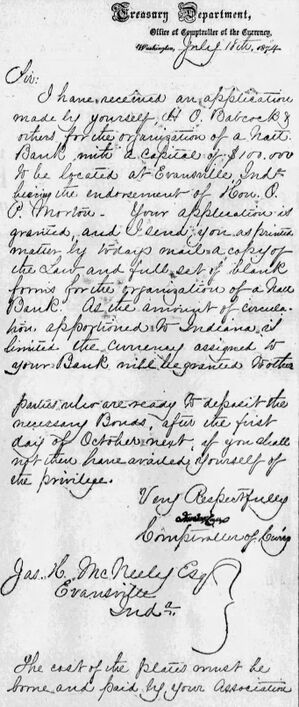 Treasury Department,
Office of Comptroller of the Currency,
Washington, July 18th, 1874
Sir:
I have received an application
made by yourself, H O. Babcock &
others for the organization of a Natl
Bank with a capital of $100.000
to be located at Evansville, Inda
bearing the endorsement of Hon. O.
P. Morton. Your application is
granted, and I send you as printed
matter by todays mail a copy of
the Law and full set of blank
forms for the organization of a Natl
Bank. As the amount of circula-
tion apportioned to Indiana is
limited the currency assigned to
your Bank will be granted to other
parties who are ready to deposit the
necessary Bonds, after the first
day of October next, if you shall
not then have availed yourself of
the privilege.
Very Respectfully
Comptroller of Curcy
Jas. H. McNeely Esq
Evansville
Inda.
The cost of the plates must be
borne and paid by your Association